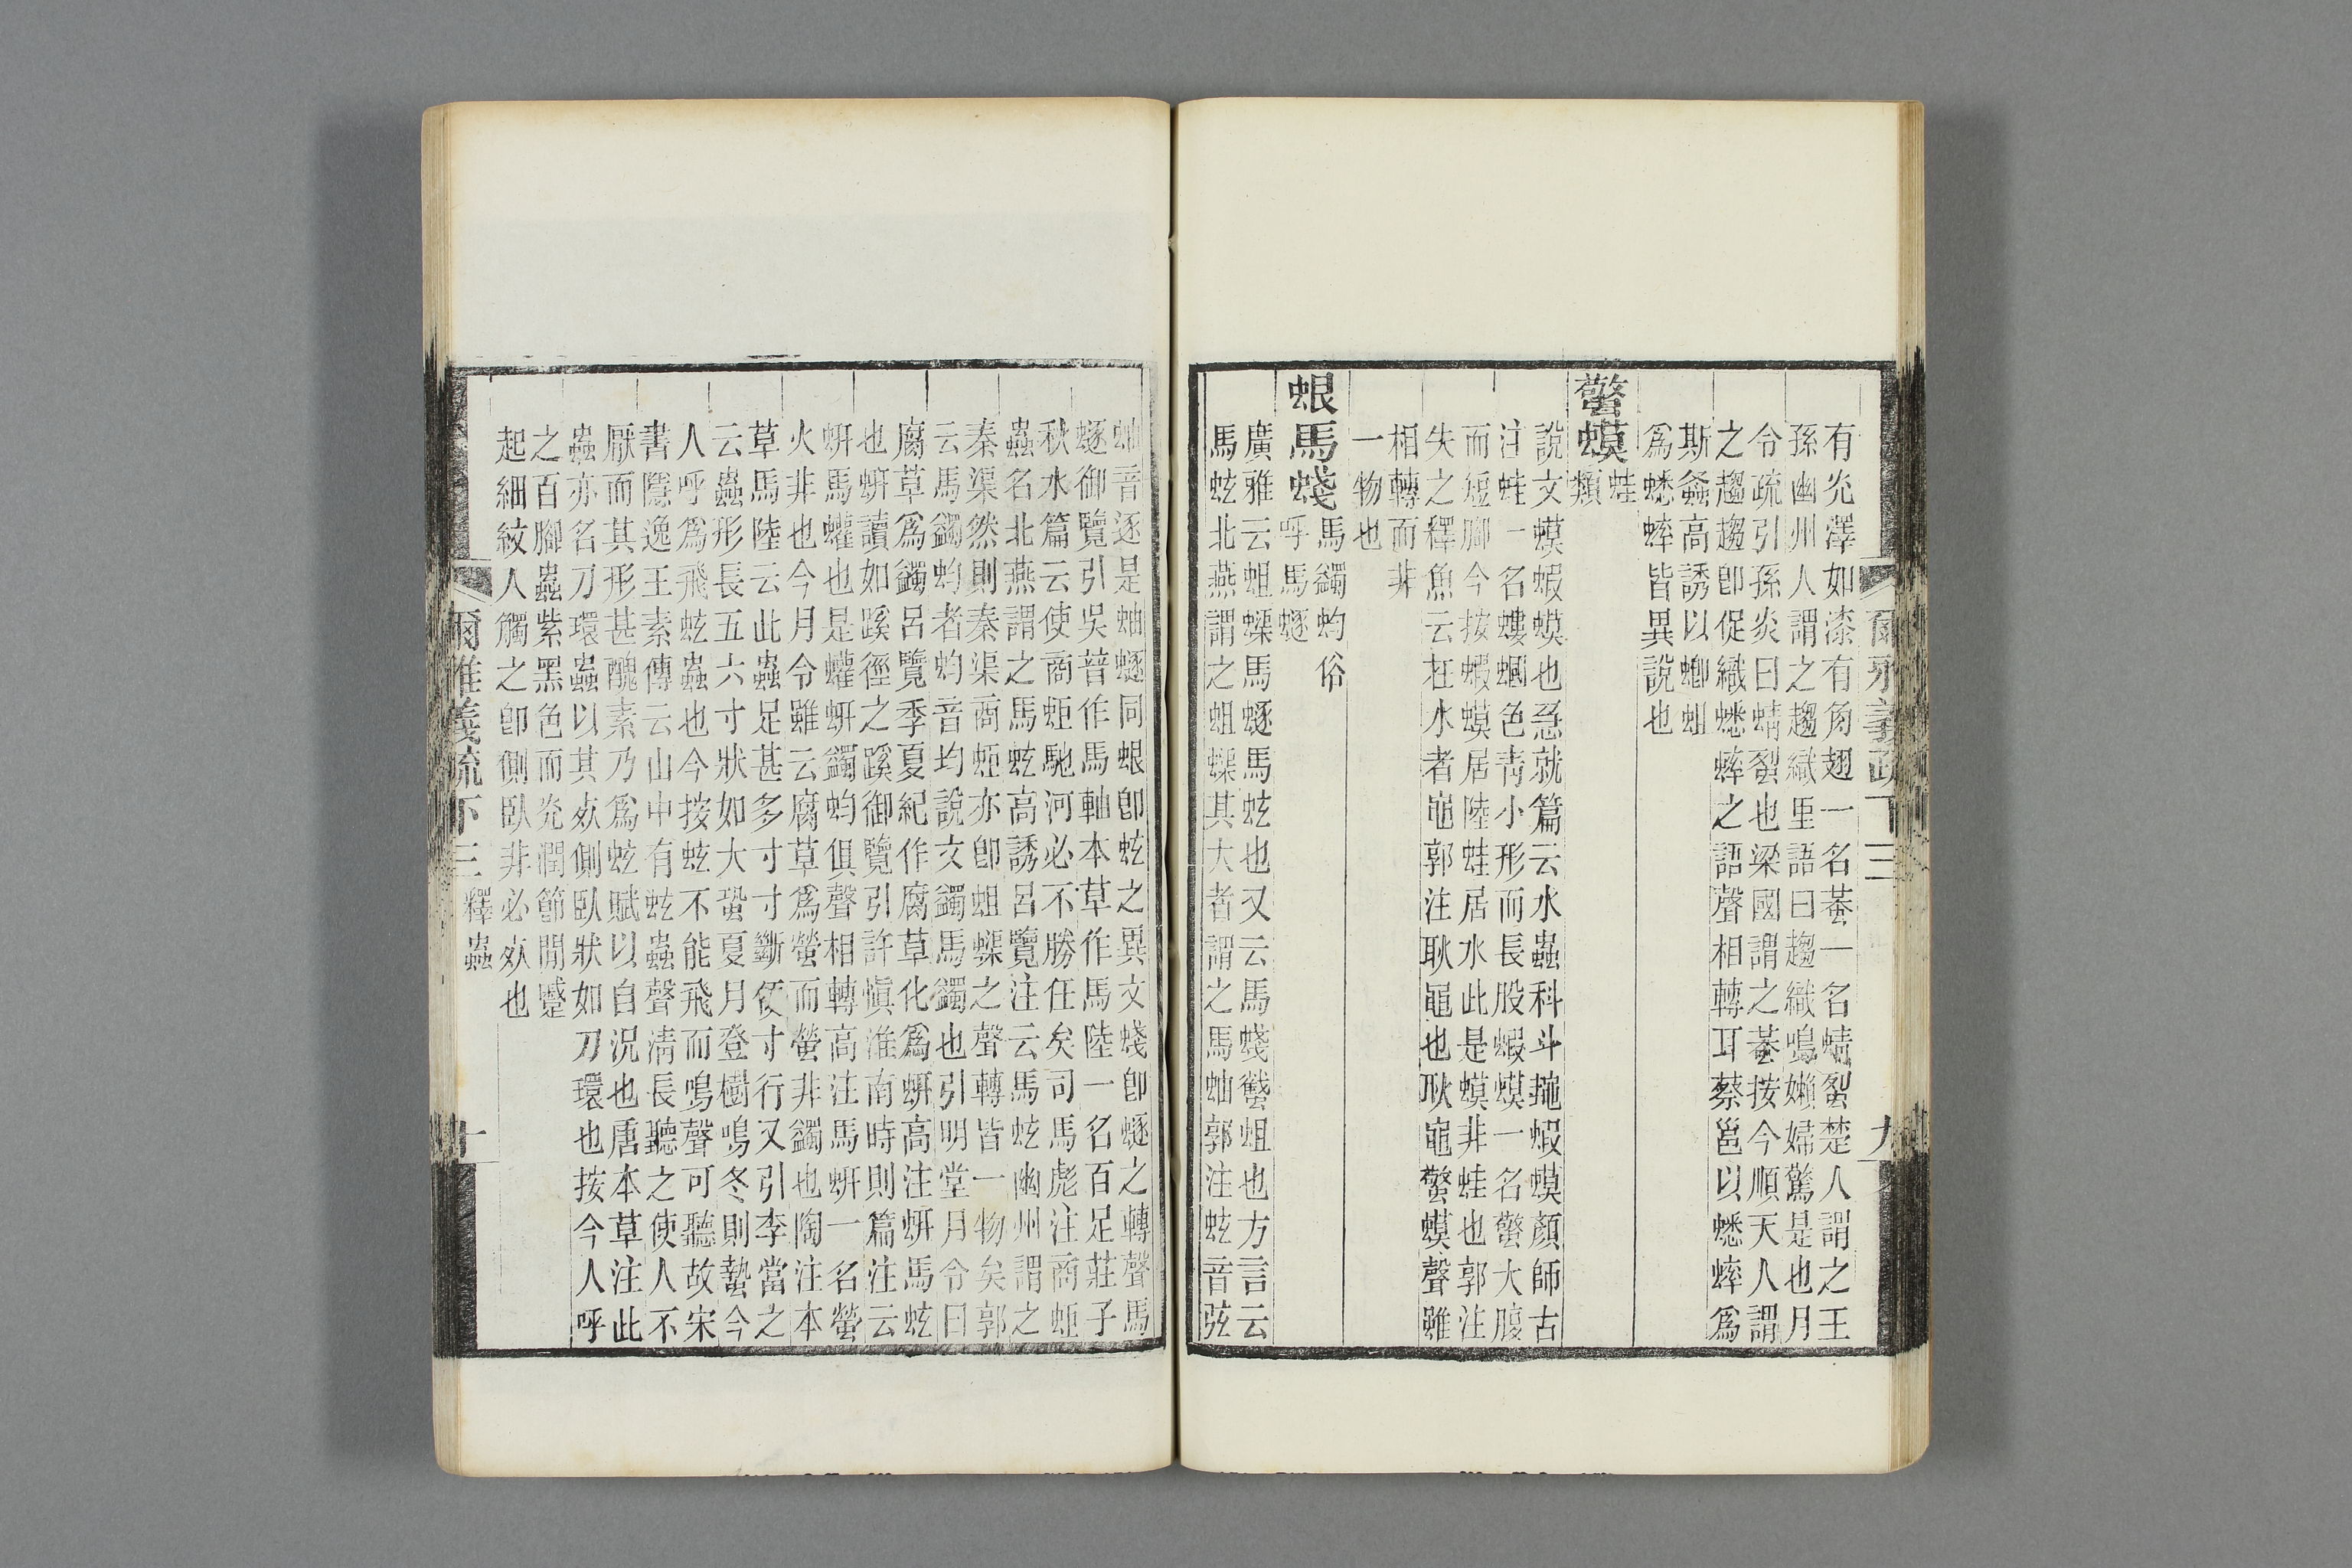 有光澤如漆有角翅一名蛬一名蜻蛚楚人謂之王
孫幽州人謂之趨織里語曰趨織鳴嬾婦驚是也月
令疏引孫炎曰蜻蛚也梁國謂之蛬按今順天人謂
之趨趨卽促織蟋蟀之語聲相轉耳蔡邕以蟋蟀爲
斯螽高誘以蝍蛆
爲蟋蟀皆異說也
蟼蟆
蛙
類
說文蟆蝦蟆也急就篇云水蟲科斗䵷蝦蟆顏師古
注蛙一名螻蟈色青小形而長股蝦蟆一名蟼大腹
而短腳今按蝦蟆居陸蛙居水此是蟆非蛙也郭注
失之釋魚云在水者黽郭注耿黽也耿黽蟼蟆聲雖
相轉而非
一物也
蛝馬䗃
馬蠲蚐俗
呼馬䗷
廣雅云蛆蟝馬䗷馬蚿也又云馬䗃䖦蛆也方言云
馬蚿北燕謂之蛆蟝其大者謂之馬蚰郭注蚿音弦
蚰音逐是蚰䗷同蛝卽蚿之異文䗃卽䗷之轉聲馬
䗷御覽引吳普作馬軸本草作馬陸一名百足莊子
秋水篇云使商蚷馳河必不勝任矣司馬彪注商蚷
蟲名北燕謂之馬蚿高誘呂覽注云馬蚿幽州謂之
秦渠然則秦渠商蚷亦卽蛆蟝之聲轉皆一物矣郭
云馬蠲蚐者蚐音均說文蠲馬蠲也引明堂月令曰
腐草爲蠲呂覽季夏紀作腐草化爲蚈高注蚈馬蚿
也蚈讀如蹊徑之蹊御覽引許愼淮南時則篇注云
蚈馬蠸也是蠸蚈蠲蚐俱聲相轉高注馬蚈一名螢
火非也今月令雖云腐草爲螢而螢非蠲也陶注本
草馬陸云此蟲足甚多寸寸斷便寸行又引李當之
云蟲形長五六寸狀如大蛩夏月登樹鳴冬則蟄今
人呼爲飛蚿蟲也今按蚿不能飛而鳴聲可聽故宋
書隱逸王素傳云山中有蚿蟲聲淸長聽之使人不
厭而其形甚醜素乃爲蚿賦以自況也唐本草注此
蟲亦名刀環蟲以其死側臥狀如刀環也按今人呼
之百腳蟲紫黑色而光潤節閒蹙
起細紋人觸之卽側臥非必死也
爾雅義疏下三
九
爾雅義疏下三
釋蟲
十